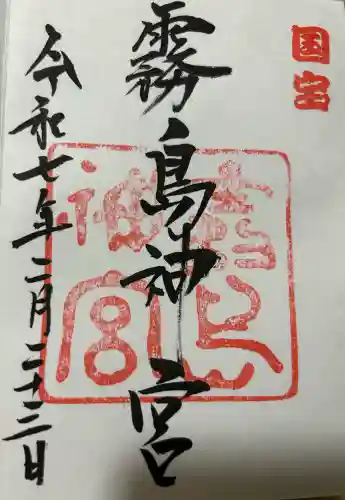 国宝
霧島神宮
霧島神宮
令和七年二月二十三日